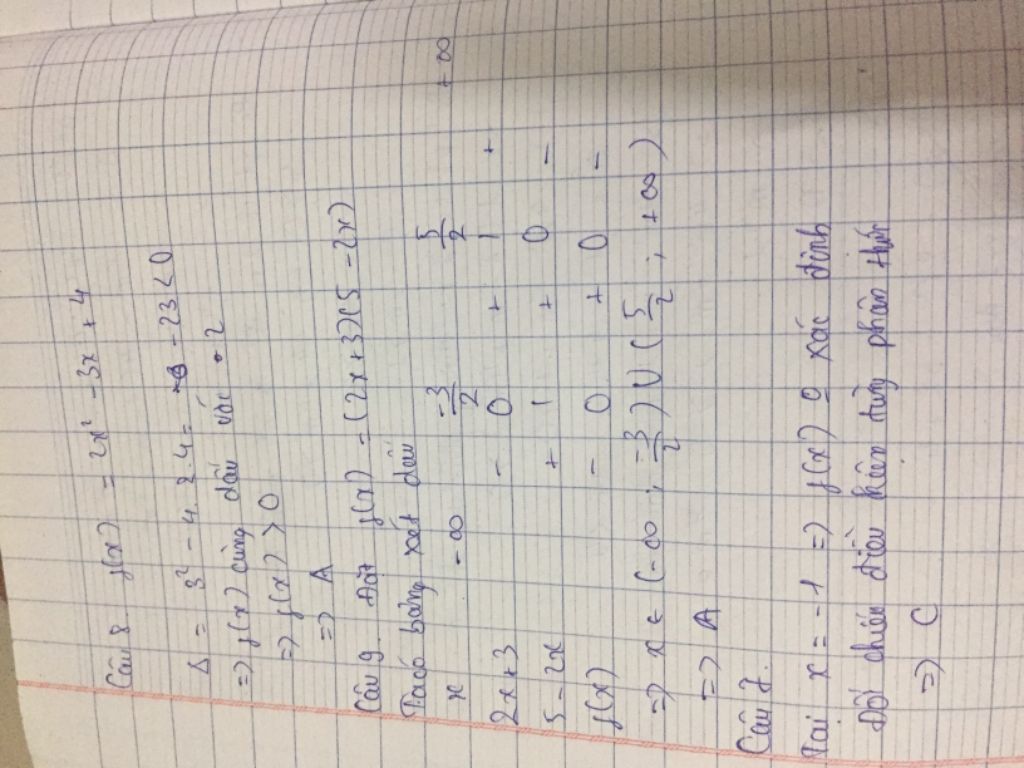 Câu 8. f(x) = 2x² - 3x + 4
Δ = 3² - 4.2.4 = - 23 < 0
=) f(x) cùng dấu với 2
=) f(x) > 0
=) A
Câu 9. Đặt f(x) = (2x+3)(5 - 2x)
Ta có bảng xét dấu
x -∞ -3/2 5/2 +∞
2x+3 - 0 + | +
5-2x + | + 0 -
f(x) - 0 + 0 -
=) x ∈ (-∞ ; -3/2) U (5/2 ; +∞)
=) A
Câu 7.
Tại x = -1 =) f(x) xác định
Đối chiếu điều kiện từng phân thức
=) C